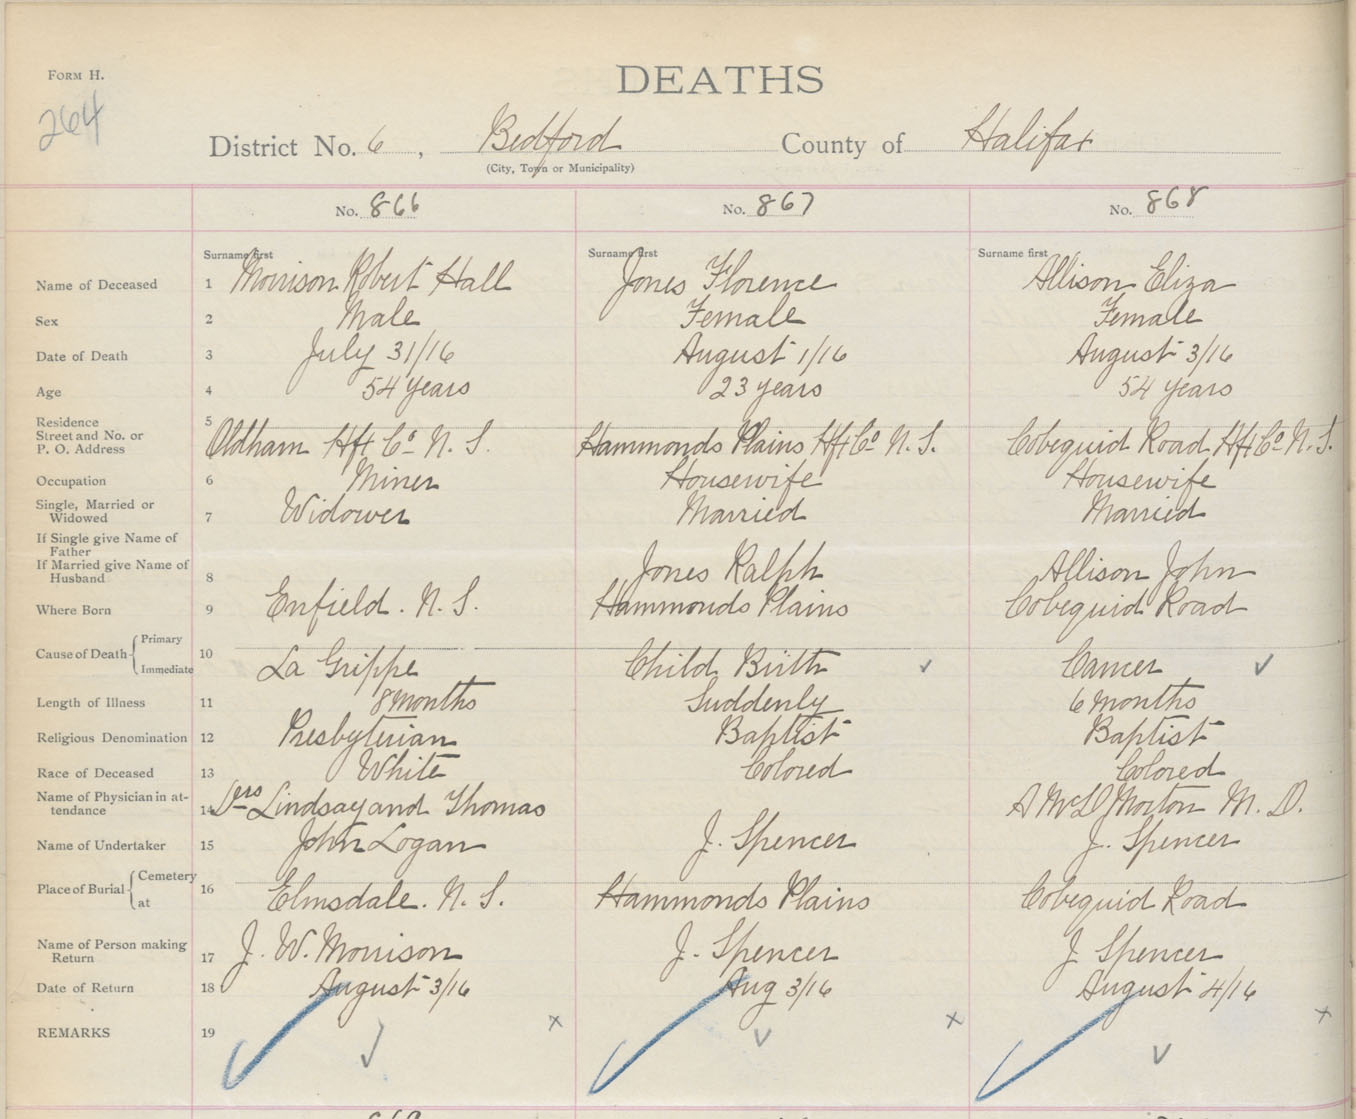 FORM H.
264
DEATHS
District No. 6, Bedford County of Halifax
(City, Town or Municipality)
No. 866 No. 867 No. 868
Surname first Surname first Surname first
Name of Deceased 1 Morrison Robert Hall Jones Florence Allison Eliza
Sex 2 Male Female Female
Date of Death 3 July 31/16 August 1/16 August 3/16
Age 4 54 years 23 years 54 years
Residence 5
Street and No. or
P. O. Address Oldham Hfx Co. N. S. Hammonds Plains Hfx Co N. S. Cobequid Road Hfx Co N. S.
Occupation 6 Miner Housewife Housewife
Single, Married or
Widowed 7 Widower Married Married
If Single give Name of
Father
If Married give Name of
Husband 8 Jones Ralph Allison John
Where Born 9 Enfield. N. S. Hammonds Plains Cobequid Road
Cause of Death Primary 10
Immediate La Grippe Child Birth ✓ Cancer ✓
Length of Illness 11 8 months Suddenly 6 months
Religious Denomination 12 Presbyterian Baptist Baptist
Race of Deceased 13 White Colored Colored
Name of Physician in at-
tendance 14 Drs Lindsay and Thomas A McD Morton M. D.
Name of Undertaker 15 John Logan J. Spencer J. Spencer
Place of Burial Cemetery 16
at Elmsdale. N. S. Hammonds Plains Cobequid Road
Name of Person making
Return 17 J. W. Morrison J. Spencer J Spencer
Date of Return 18 August 3/16 Aug 3/16 August 4/16
REMARKS 19 ✓ ✓ x ✓ ✓ x ✓ ✓ x